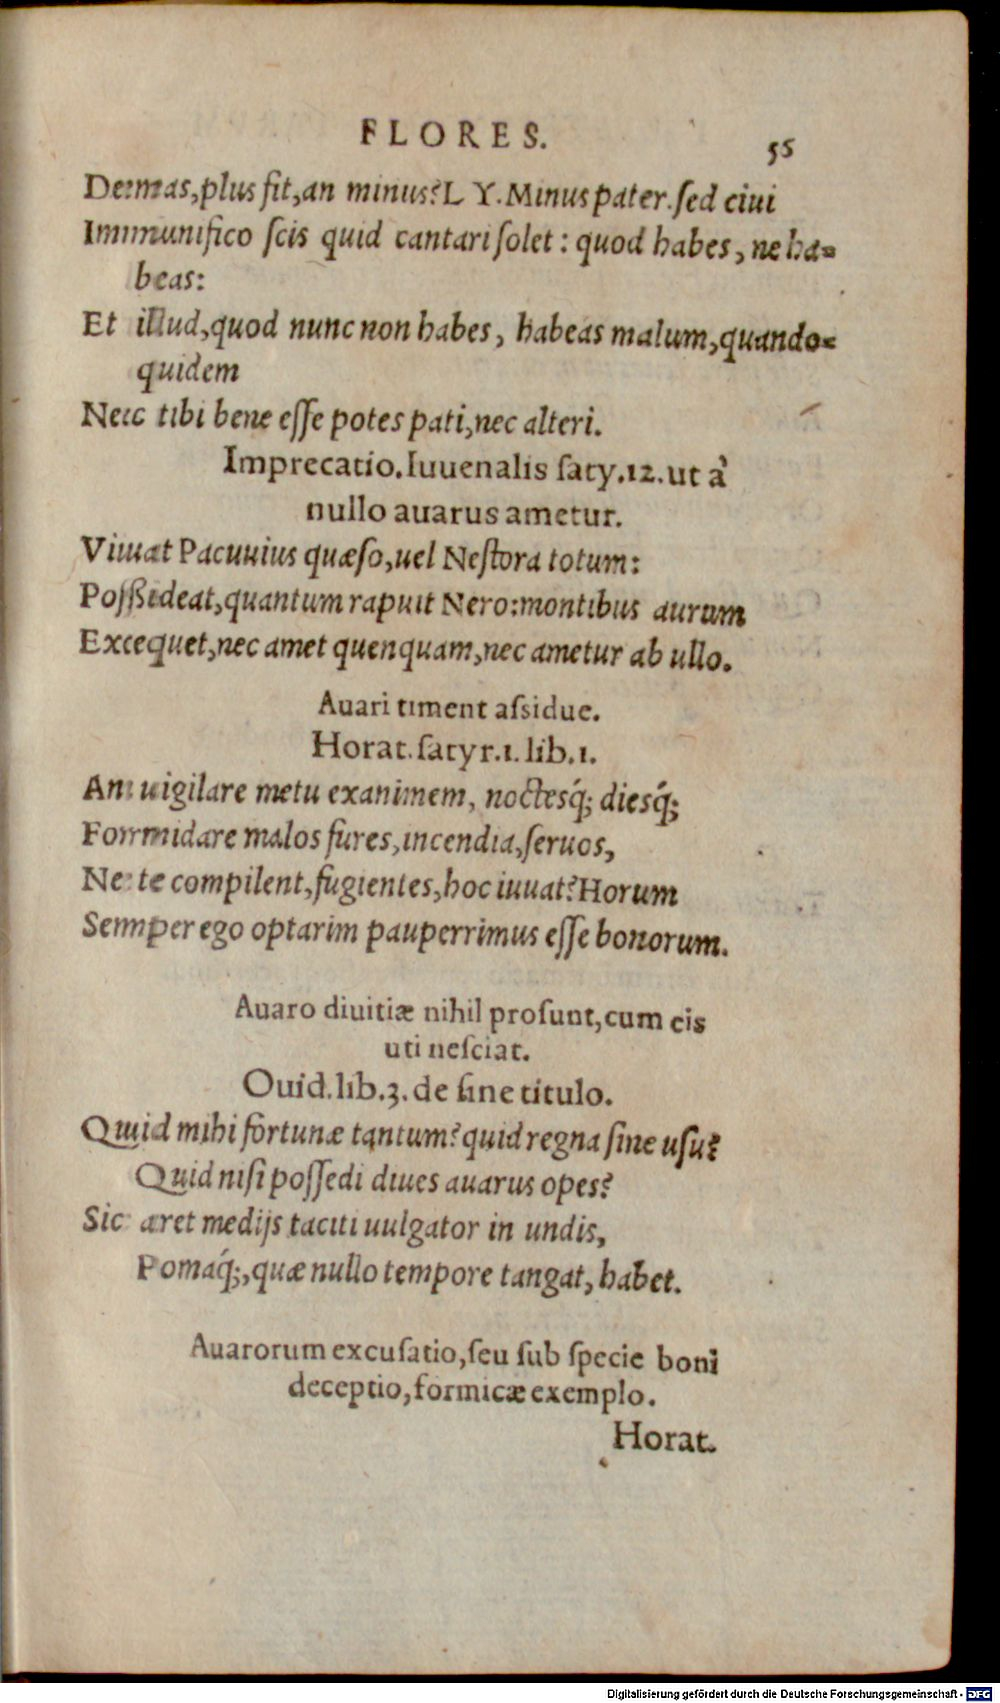 FLORES. 55
Demas,plus fit,an minus? L Y. Minus pater. sed ciui
Immunifico scis quid cantari solet: quod habes, ne ha-
beas:
Et illud,quod nunc non habes, habeas malum,quando-
quidem
Nec tibi bene esse potes pati,nec alteri.
Imprecatio. Iuuenalis saty.12. ut à
nullo auarus ametur.
Viuat Pacuuius quæso,uel Nestora totum:
Possideat,quantum rapuit Nero:montibus aurum
Excequet,nec amet quenquam,nec ametur ab ullo.
Auari timent assidue.
Horat. satyr.1. lib.1.
An uigilare metu exanimem, noctesq́; diesq́;
Formidare malos fures,incendia,seruos,
Ne te compilent,fugientes,hoc iuuat? Horum
Semper ego optarim pauperrimus esse bonorum.
Auaro diuitiæ nihil prosunt,cum eis
uti nesciat.
Ouid.lib.3. de sine titulo.
Quid mihi fortunæ tantum? quid regna sine usu?
Quid nisi possedi diues auarus opes?
Sic aret medijs taciti uulgator in undis,
Pomaq́;,quæ nullo tempore tangat, habet.
Auarorum excusatio,seu sub specie boni
deceptio,formicæ exemplo.
Horat.
Digitalisierung gefördert durch die Deutsche Forschungsgemeinschaft - DFG